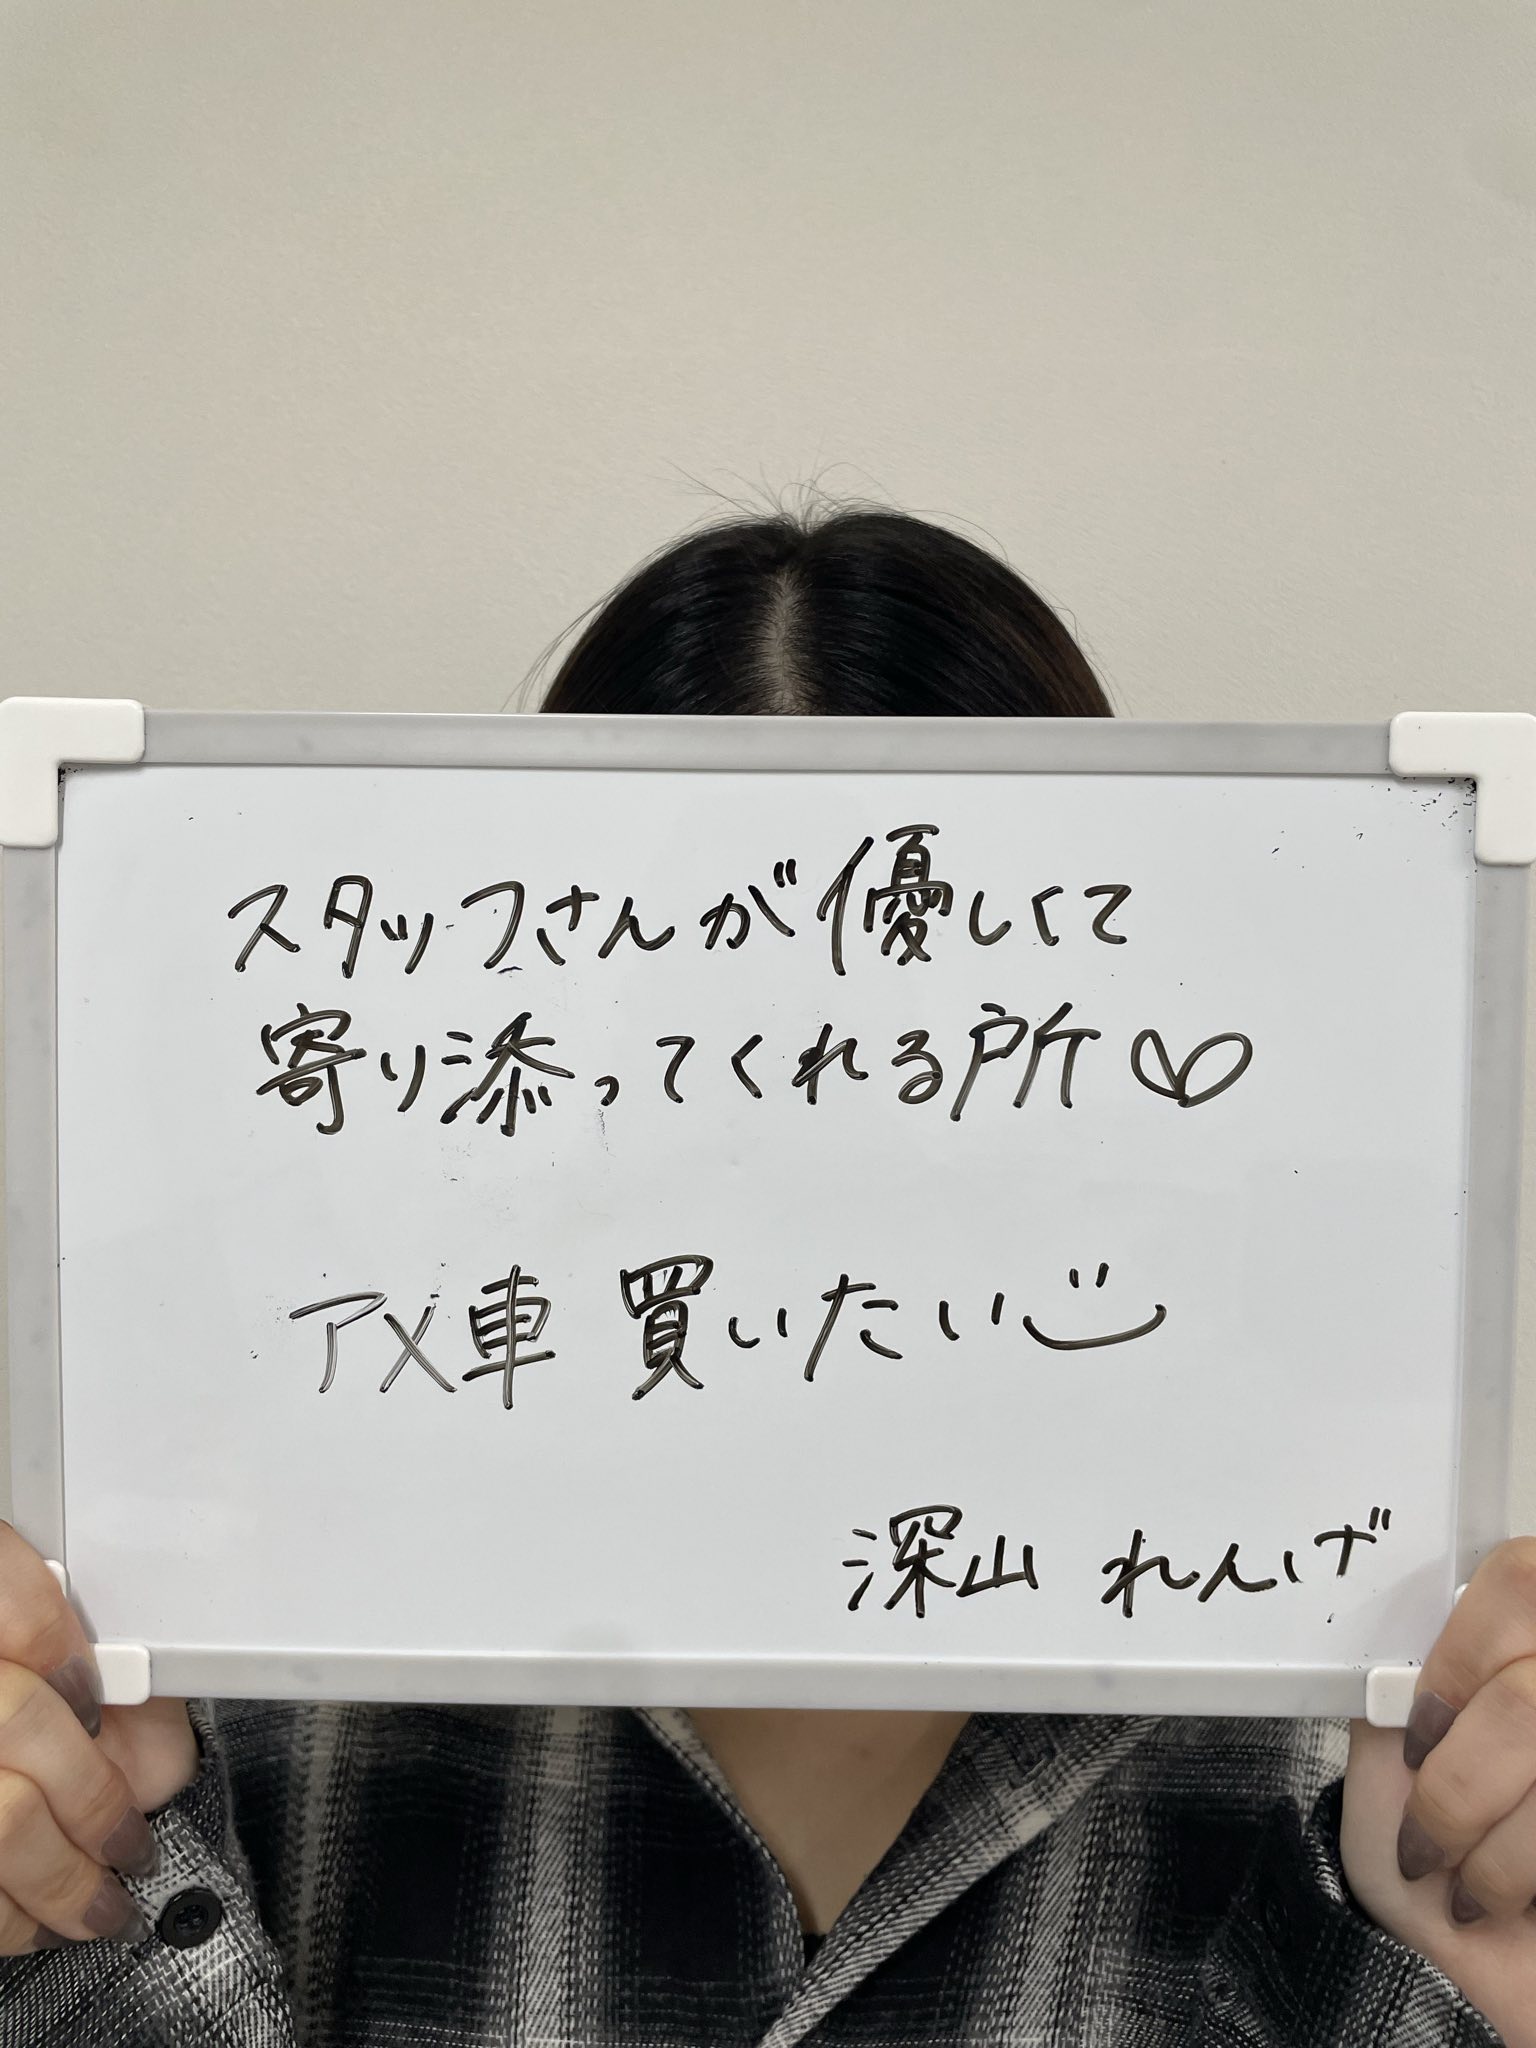 スタッフさんが優しくて
寄り添ってくれる所♡
アメ車 買いたい
深山 れんげ